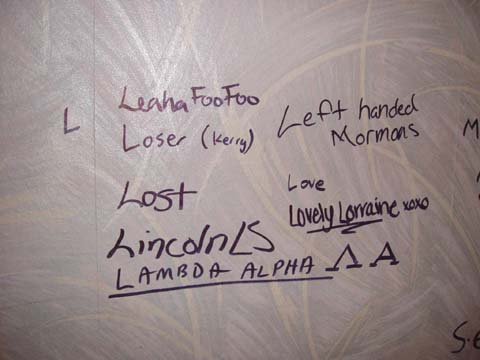 L
Leaha FooFoo
Loser (Kerry)
Left handed
Mormons
Lost
Love
Lovely Lorraine xoxo
Lincoln LS
LAMBDA ALPHA Λ A
M
S.E